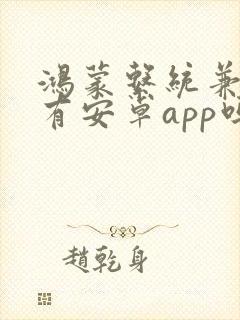 鴻蒙繫統兼
有安卓app嗎
趙乾身